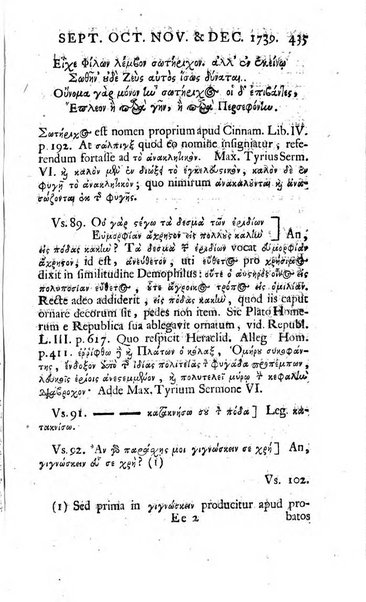 SEPT. OCT. NOV. & DEC. 1739. 435
Εἶχε Φίλων λέμβον σωτήριχον. ἀλλ' ἐν ἐκείνῳ
Σωθῆν' ὐδὲ Ζεὺς αὐτὸς ἴσως δύναται.
Οὔνομα γὰρ μόνον ἦν σωτήριχος οἱ δ' ἐπιβάντες,
Ἔπλεον ἢ παρὰ γῆν, ἢ παρὰ Περσεφόνην.
Σωτήριχος est nomen proprium apud Cinnam. Lib. IV.
p. 192. At σάλπιγξ quod eo nomine insignitur, refe-
rendum fortasse ad τὸ ἀνακλητικόν. Max. Tyrius Serm.
VI. ἢ καλὸν μὲν ἐν διώξει τὸ ἐγκελευστικὸν, καλὸν δὲ ἐν
φυγῇ τὸ ἀνακλητικόν; quo nimirum ἀνακαλοῦνται ἢ ἀνα-
σώζονται ἐκ τ φυγῆς.
Vs. 89. Οὐ γὰρ ψέγω τὰ δεσμὰ τῶν ἐρμδίων
Εὐμορφίαν ἄχρηστον εἰς πολλὺς καλῶ] An,
εἰς πόδας κακῶ? Τὰ δεσμὰ τ ἐρμδίων vocat εὐμορφίαν
ἄχρηστον; id est, ἀνεύθετον, uti εὔθετος pro χρήσιμος
dixit in similitudine Demophilus: οὔτε ὁ αὐστηρὸς οἶνος εἰς
πολυποσίαν εὔθετος, ὅτε ἄγροικος τρόπος εἰς ὁμιλίαν.
Recte adeo addiderit, εἰς πόδας κακῶ, quod iis caput
ornare decorum sit, pedes non item. Sic Plato Home-
rum e Republica sua ablegavit ornatum, vid. Republ.
L. III. p. 617. Quo respicit Heraclid. Alleg Hom.
p. 411. ἐρρίφθω ἢ ἢ Πλάτων ὁ κόλαξ, Ὁμήρυ συκοφάν-
της, ἔνδοξον ἀπὸ τ ἰδίας πολιτείας τ φυγάδα προπέμπων,
λευκοῖς ἐρίοις ἀνεστεμμένον, ἢ πολυτελεῖ μύρῳ τ κεφαλὴν
διάβροχον. Adde Max. Tyrium Sermone VI.
Vs. 91. — — καταξενήσω συ τ πόδα] Leg. κα-
τακνίσω.
Vs. 92. Ἂν γὰρ παράσχῃς μοι γιγνώσκειν σε χρὴ] An,
γιγνώσκειν ὗ σε χρὴ? (1)
Vs. 102.
(1) Sed prima in γιγνώσκειν producitur apud pro-
Ee 2 batos